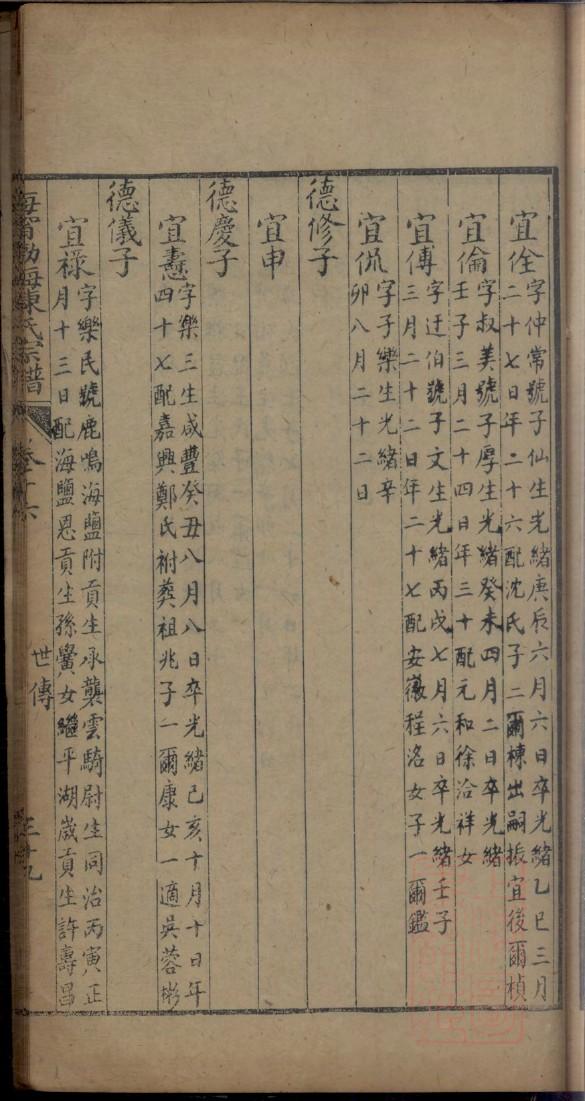 宜佺字仲常號子仙生光緒庚辰六月六日卒光緒乙巳三月
二十七日年二十六配沈氏子二爾棟出嗣振宜後爾楨
宜倫字叔美號子厚生光緒癸未四月二日卒光緒
壬子三月二十四日年三十配元和徐洽祥女
宜傅字迂伯號子文生光緒丙戌七月六日卒光緒壬子
三月二十二日年二十七配安徽程洛女子一爾鑑
宜侃字子樂生光緒辛
卯八月二十二日
德修子
宜申
德慶子
宜憲字樂三生咸豐癸丑八月八日卒光緒己亥十月十日年
四十七配嘉興鄭氏祔葬祖兆子一爾康女一適吳蓉彬
德儀子
宜祿字樂民號鹿鳴海鹽附貢生承襲雲騎尉生同治丙寅正
月十三日配海鹽恩貢生孫黌女繼平湖歲貢生許壽昌
海甯渤海陳氏宗譜
卷十六
世傳
三十九